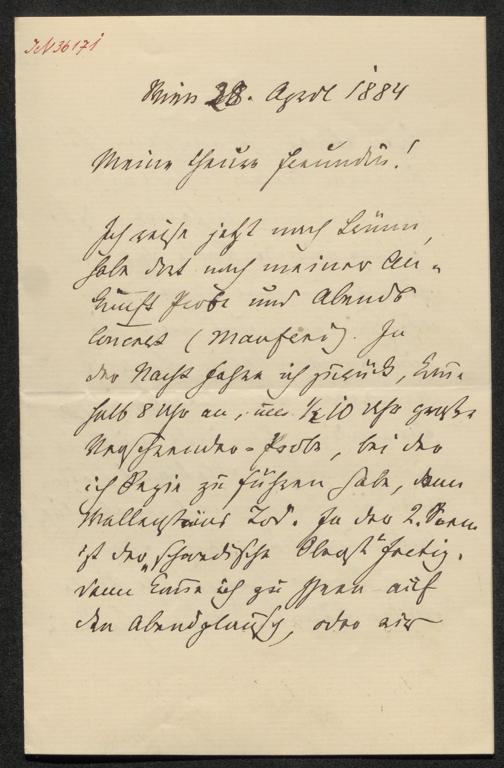 JN 36171
Wien 28. April 1884
Meine theure Freundin!
Ich reise jetzt nach Brünn,
habe dort nach meiner An-
kunft Probe und Abends
Concert (Manfred). In
der Nacht fahre ich zurück, komme
halb 8 Uhr an, um 1/2 10 Uhr große
Verschwender-Probe, bei der
ich Regie zu führen habe, dann
Wallensteins Tod. In der 2. Scene
ist der „schwedische Oberst" fertig.
Dann komme ich zu Ihnen auf
den Abendplausch, oder wir